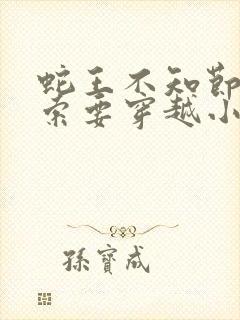 蛇王不知節
索要穿越小
孫寶成